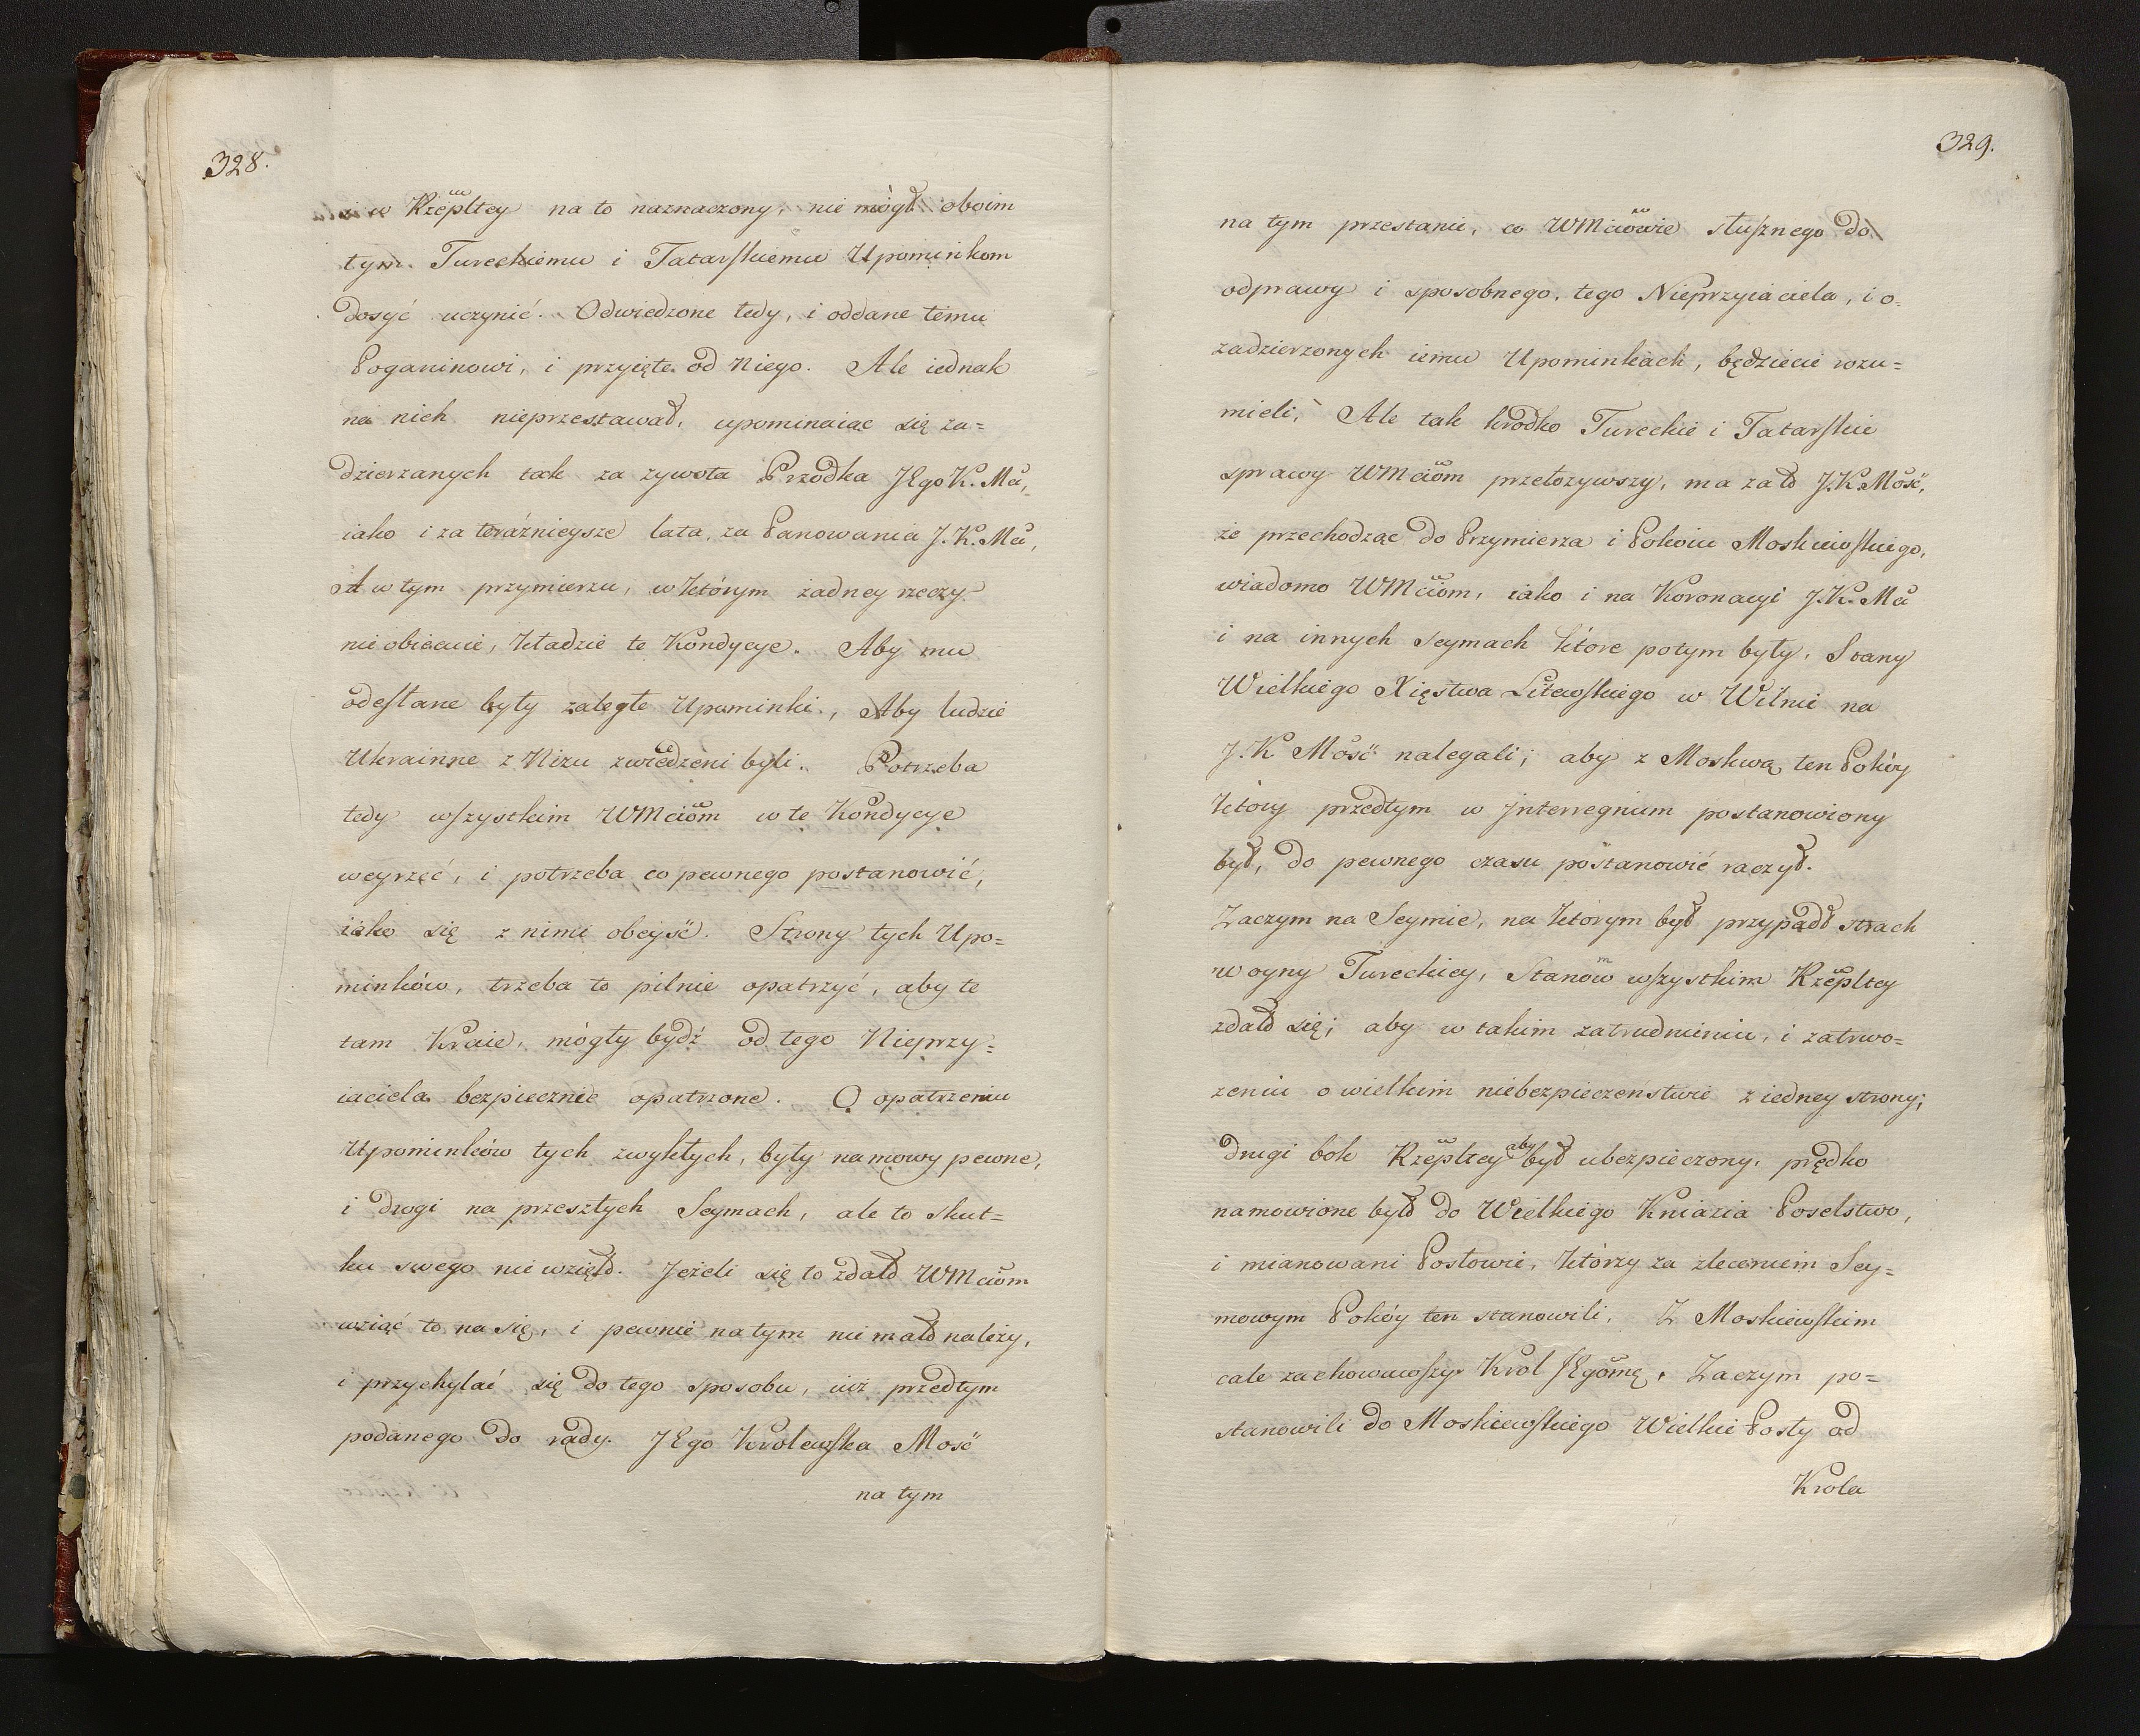 328.
i w Rzepltey na to naznaczony, nie mógł oboim
tym. Tureckiemu i Tatarskiemu Upominkom
dosyć uczynić. Odwiedzone tedy, i oddane temu
Poganinowi, i przyięte od niego. Ale iednak
na nich nieprzestawał, upominaiąc się za=
dzierzanych tak za zywota Przodka JEgo K. Mci,
iako i za teráznieysze lata, za Panowania J. K. Mci,
A w tym przymierzu, w którym żadney rzeczy
nie obiecuie, kładzie te Kondycye. Aby mu
odesłane były zaległe Upominki., Aby ludzie
Ukrainne z Nizu zwiedzeni byli. Potrzeba
tedy wszystkim WMciom w te Kondycye
weyrzeć, i potrzeba co pewnego postanowić,
iako się z nimi obeyść. Strony tych Upo=
minków, trzeba to pilnie opatrzyć, aby te
tam Kraie, mógły bydź od tego Nieprzy=
iaciela bezpiecznie opatrzone. O opatrzeniu
Upominków tych zwykłych, były namowy pewne,
i drogi na przeszłych Seymach, ale to skut=
ku swego nie wzięło. Jeżeli się to zdało WMciom
wziąć to na się, i pewnie na tym nie mało należy,
i przychylać się do tego sposobu, iuż przedtym
podanego do rady. JEgo Krolewska Mość
na tym
329.
na tym przestanie, co WMciowie słusznego do
odprawy i sposobnego, tego Nieprzyiaciela, i o=
zadzierzonych iemu Upominkach, będziecie rozu=
mieli, Ale tak krodko Tureckie i Tatarskie
sprawy WMciom przełozywszy, ma za to J. K. Mość,
że przechodząc do Przymierza i Pokoiu Moskiewskiego,
wiadomo WMciom, iako i na Koronacyi J. K. Mci
i na innych Seymach które potym były, Stany
Wielkiego Xięstwa Litewskiego w Wilnie na
J. K Mość nalegali; aby z Moskwą ten Pokóy
który przedtym w jnterregnium postanowiony
był, do pewnego czasu postanowić raczył.
Zaczym na Seymie, na którym był przypadł strach
woyny Tureckiey, Stanom wszystkim Rzepltey
zdało się; aby w takim zatrudnieniu, i zatrwo=
zeniu o wielkim niebezpieczeństwie z iedney strony;
drugi bok Rzepltey aby był ubezpieczony, prędko
namowione było do Wielkiego Kniazia Poselstwo,
i mianowani Posłowie, którzy za zleceniem Sey=
mowym Pokóy ten stanowili. Z Moskiewskim
cale zachowawszy Krol JEgomę, Zaczym po=
stanowili do Moskiewskiego Wielkie Posły od
Krola